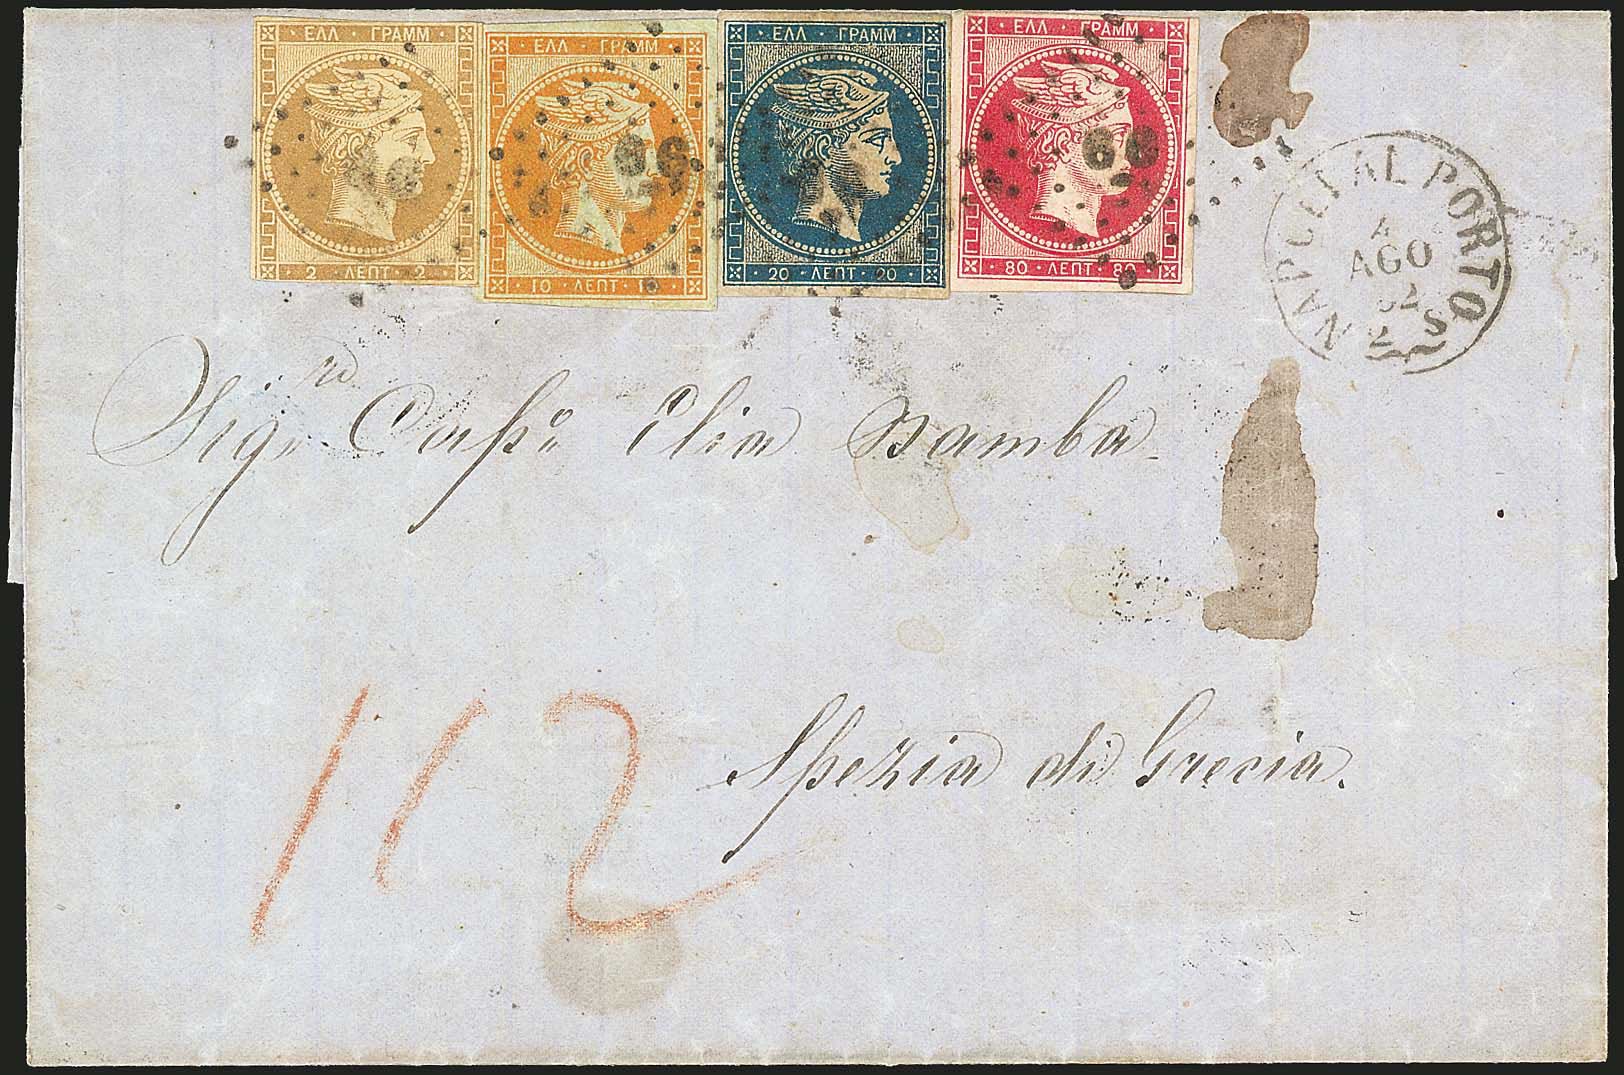 ΕΛΛ · ΓΡΑΜΜ
2 · ΛΕΠΤ · 2
ΕΛΛ · ΓΡΑΜΜ
10 · ΛΕΠΤ · 10
ΕΛΛ · ΓΡΑΜΜ
20 · ΛΕΠΤ · 20
ΕΛΛ · ΓΡΑΜΜ
80 · ΛΕΠΤ · 80
NAPOLI AL PORTO
4
AGO
62
2 S
Sig.re Cap.o Elia
Spezia di Grecia.
112